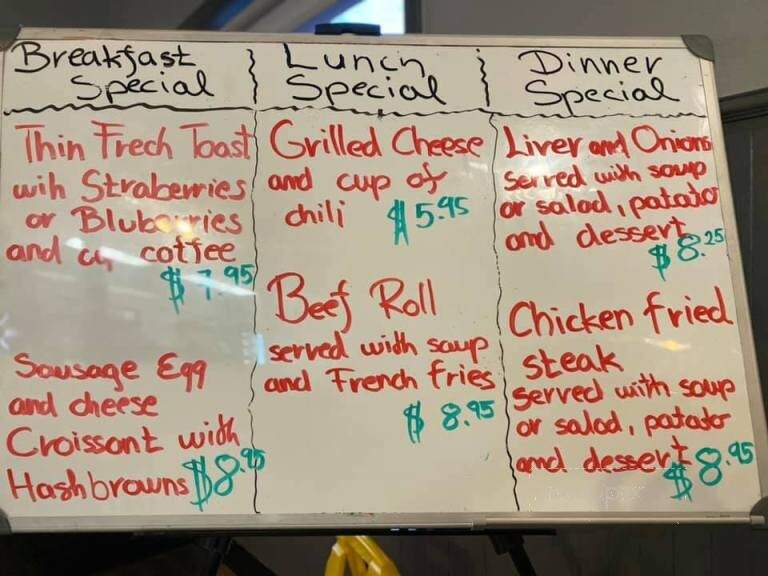 Breakfast
Special
Thin Frech Toast
wih Straberries
or Bluberries
and coffee
$7.95
Sausage Egg
and cheese
Croissant with
Hashbrowns $8.95
Lunch
Special
Grilled Cheese
and cup of
chili $5.95
Beef Roll
served with soup
and French fries
$8.95
Dinner
Special
Liver and Onions
served with soup
or salad, patato
and dessert
$8.25
Chicken fried
steak
served with soup
or salad, patato
and dessert
$8.95